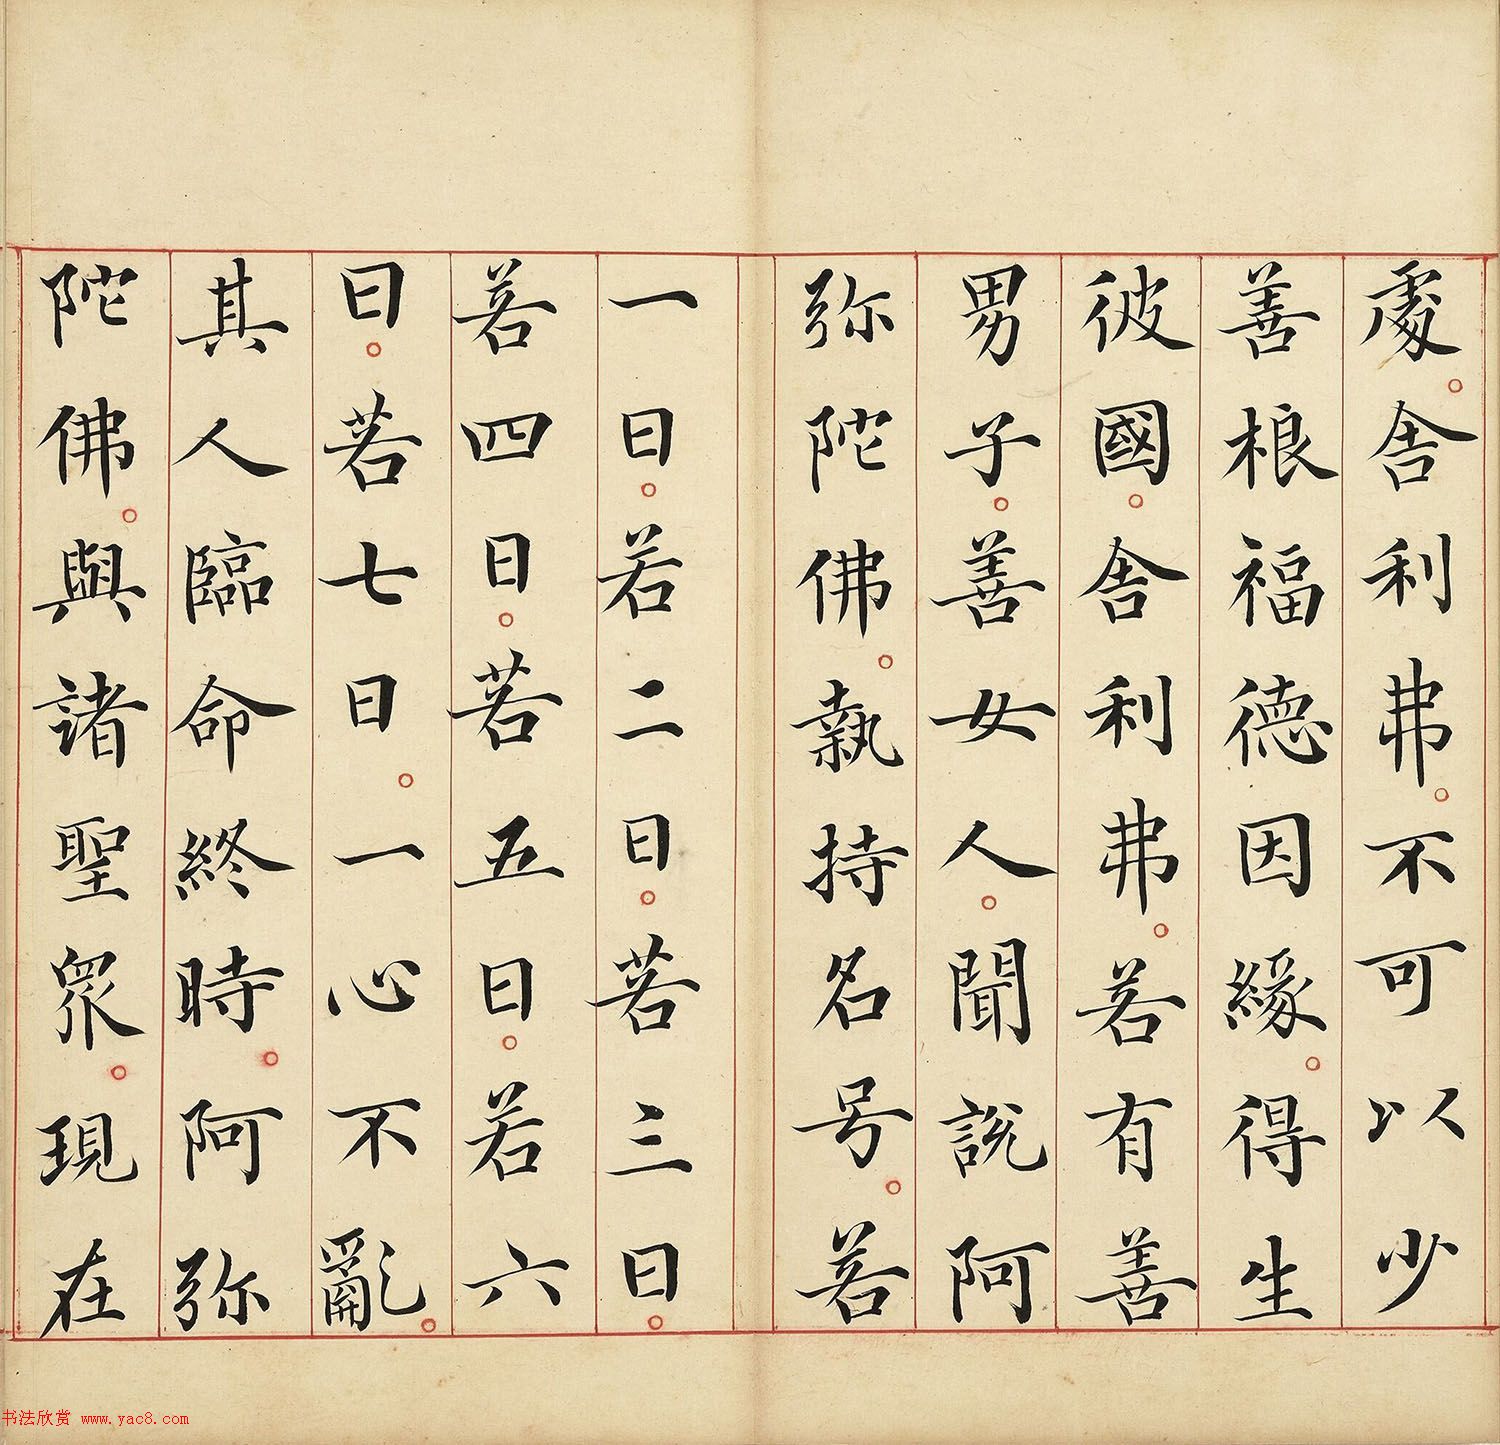 處。舎利弗。不可以少
善根福德因緣。得生
彼國。舎利弗。若有善
男子。善女人。聞說阿
弥陀佛。執持名号。若
一日。若二日。若三日。
若四日。若五日。若六
日。若七日。一心不亂。
其人臨命終時。阿弥
陀佛。與諸聖眾。現在
书法欣赏 www.yac8.com